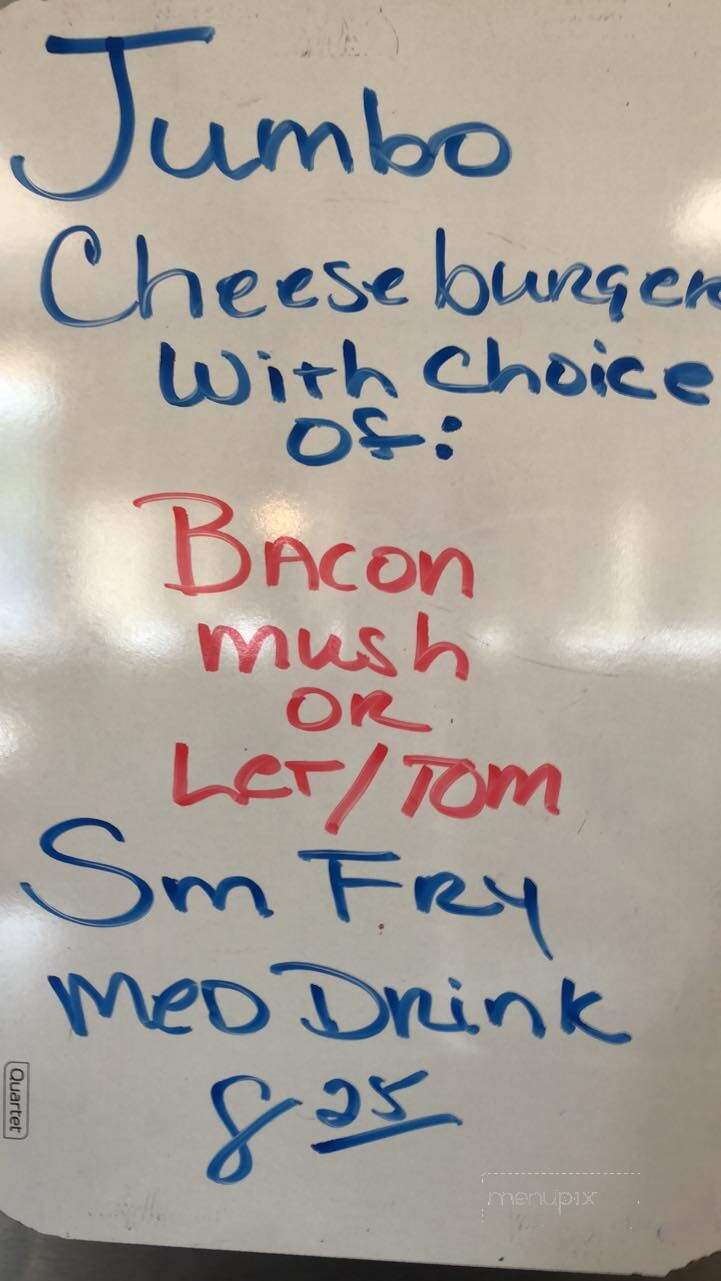 Jumbo
Cheeseburger
With Choice
Of:
Bacon
mush
OR
Let/Tom
Sm Fry
Med Drink
8 25
Quartet
menupix